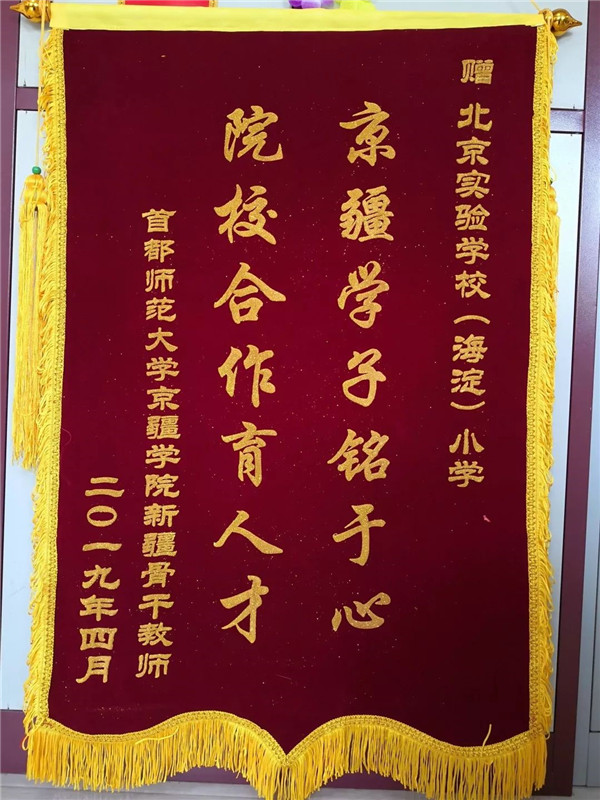 赠 北京实验学校（海淀）小学
京疆学子铭于心
院校合作育人才
首都师范大学京疆学院新疆骨干教师
二〇一九年四月